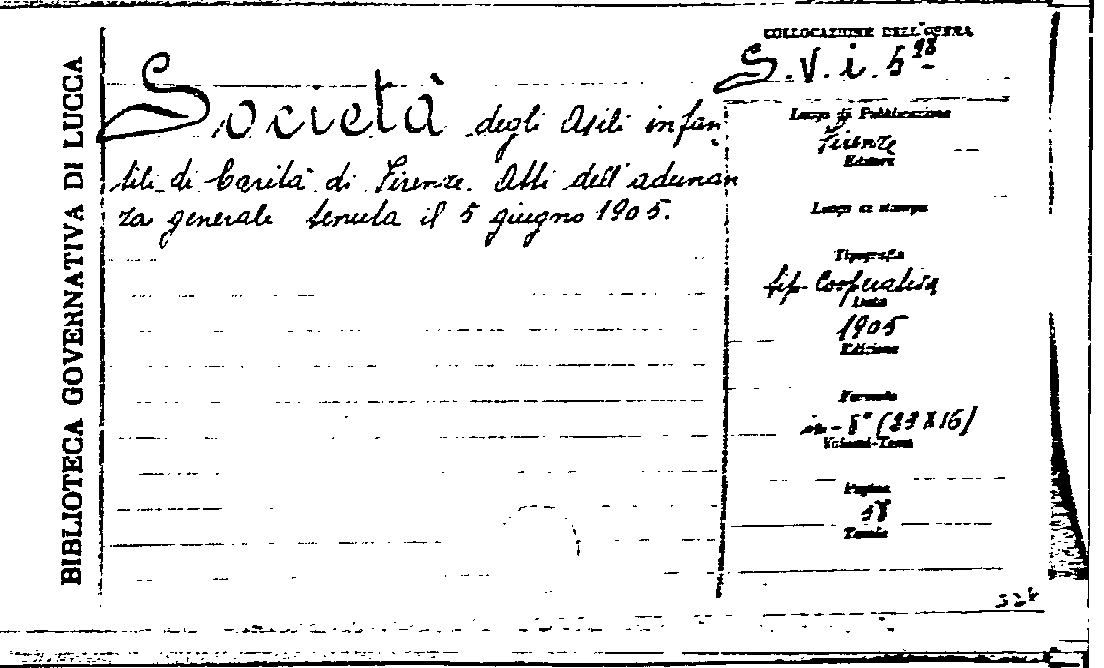 BIBLIOTECA GOVERNATIVA DI LUCCA
Società degli Asili infan
tili di Carità di Firenze. Atti dell'adunan
za generale tenuta il 5 giugno 1905.
COLLOCAZIONE DELL'OPERA
S. V. i. 5
Luogo di Pubblicazione
Firenze
Editore
Luogo di stampa
Tipografia
tip. Cooperativa
Data
1905
Edizione
Formato
in-8° (23X16)
Volumi-Tomi
Pagine
Tavole